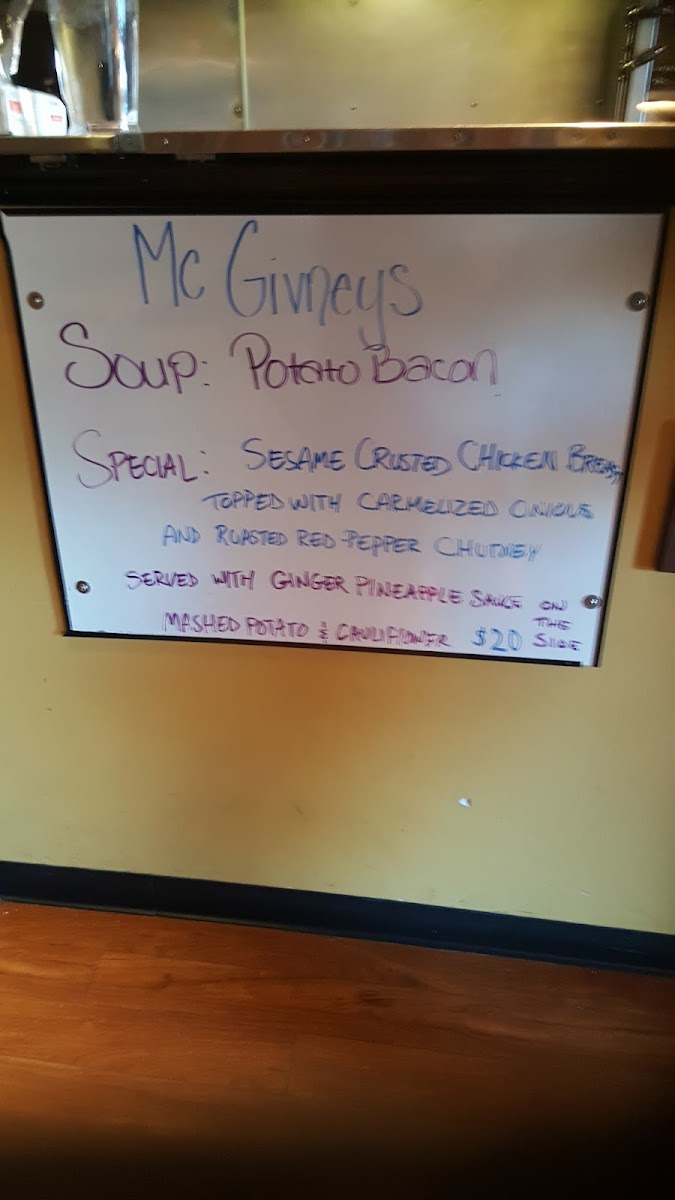 Mc Givneys
Soup: Potato Bacon
Special: Sesame Crusted Chicken Breast
Topped with Carmelized Onions
and Roasted Red Pepper Chutney
Served with Ginger Pineapple Sauce on the side
Mashed Potato & Cauliflower $20